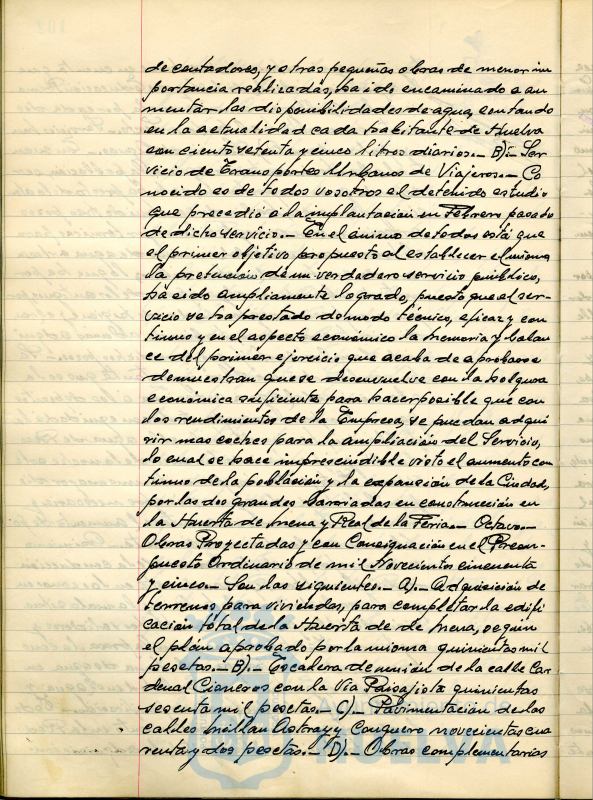 de contadores, y otras pequeñas obras de menor im
portancia realizadas, ha ido encaminado a au
mentar las disponibilidades de agua, contando
en la actualidad cada habitante de Huelva
con ciento setenta y cinco litros diarios.- B).- Ser
vicio de Transportes Urbanos de Viajeros.- Co
nocido es de todos vosotros el detenido estudio
que precedió a la implantación en Febrero pasado
de dicho servicio.- En el ánimo de todos está que
el primer objetivo propuesto al establecer el mismo
la prestación de un verdadero servicio público,
ha sido ampliamente logrado, puesto que al ser-
vicio se ha prestado de modo técnico, eficaz y con
tinuo y en el aspecto económico la Memoria y balan
ce del primer ejercicio que acaba de aprobarse
demuestran que se desenvuelve con la holgura
económica suficiente para hacer posible que con
los rendimientos de la Empresa, se puedan adqui
rir mas coches para la ampliación del Servicio,
lo cual se hace imprescindible visto el aumento con
tinuo de la población y la expansión de la Ciudad,
por las dos grandes barriadas en construcción en
la Huerta de Mena y Real de la Feria.- Octavo.-
Obras Proyectadas y con Consignación en el Presu-
puesto Ordinario de mil Novecientos cincuenta
y cinco.- Son las siguientes.- A).- Adquisición de
terrenos para viviendas, para completar la edifi
cación total de la Huerta de de Mena, según
el plán aprobado por la misma quinientas mil
pesetas.- B).- Escalera de unión de la calle Car
denal Cisneros con la Vía Paisajista quinientas
sesenta mil pesetas.- C).- Pavimentación de las
calles Millan Astray y Conquero novecientas cua
renta y dos pesetas.- D).- Obras complementarias